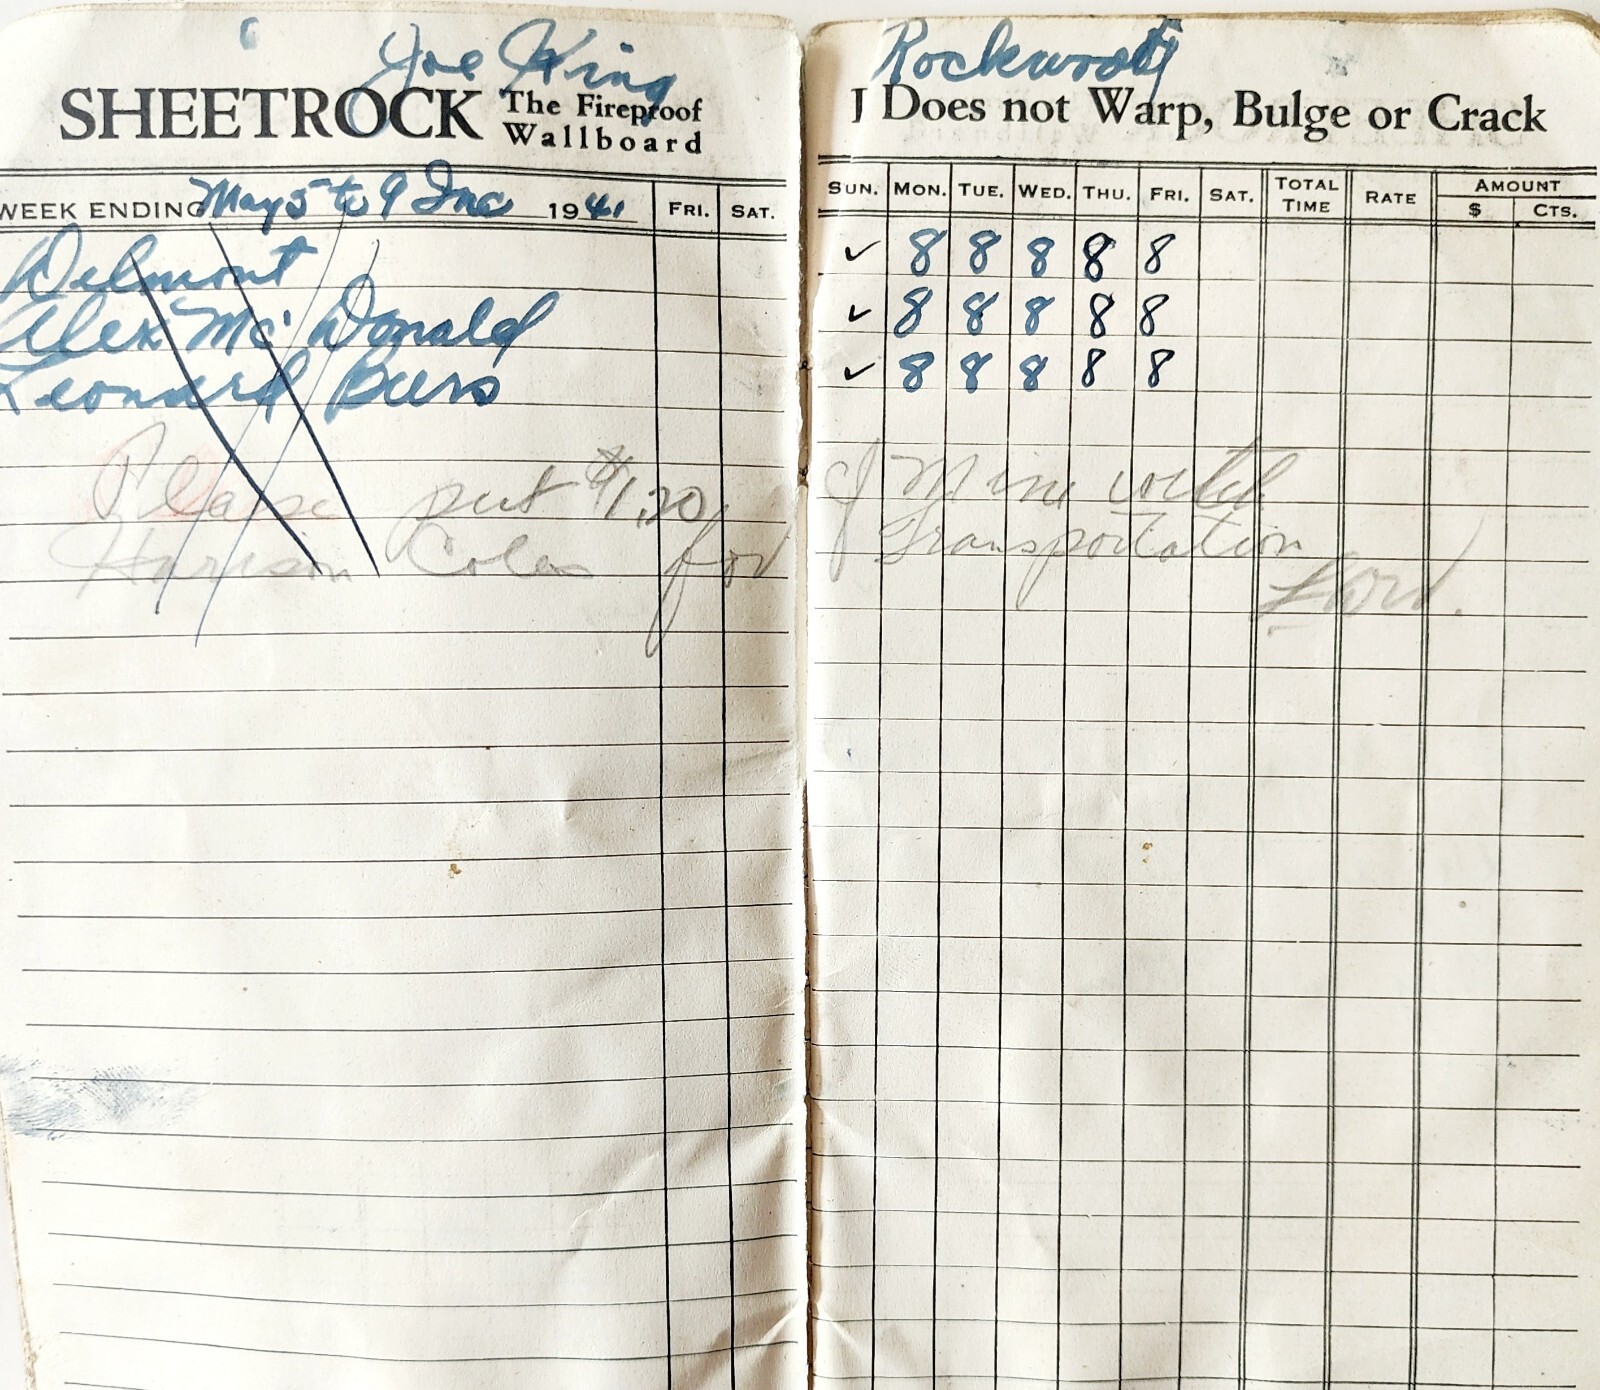 Joe King
SHEETROCK The Fireproof Wallboard
WEEK ENDING May 5 to 9 Inc 1941 FRI. SAT.
Delmont
Alex Mc Donald
Leonard
Please put $1.20
Harrison Coles for
Rockwood
J Does not Warp, Bulge or Crack
SUN. MON. TUE. WED. THU. FRI. SAT. TOTAL TIME RATE AMOUNT $ CTS.
✓ 8 8 8 8 8
✓ 8 8 8 8 8
✓ 8 8 8 8 8
Mine with
Transportation